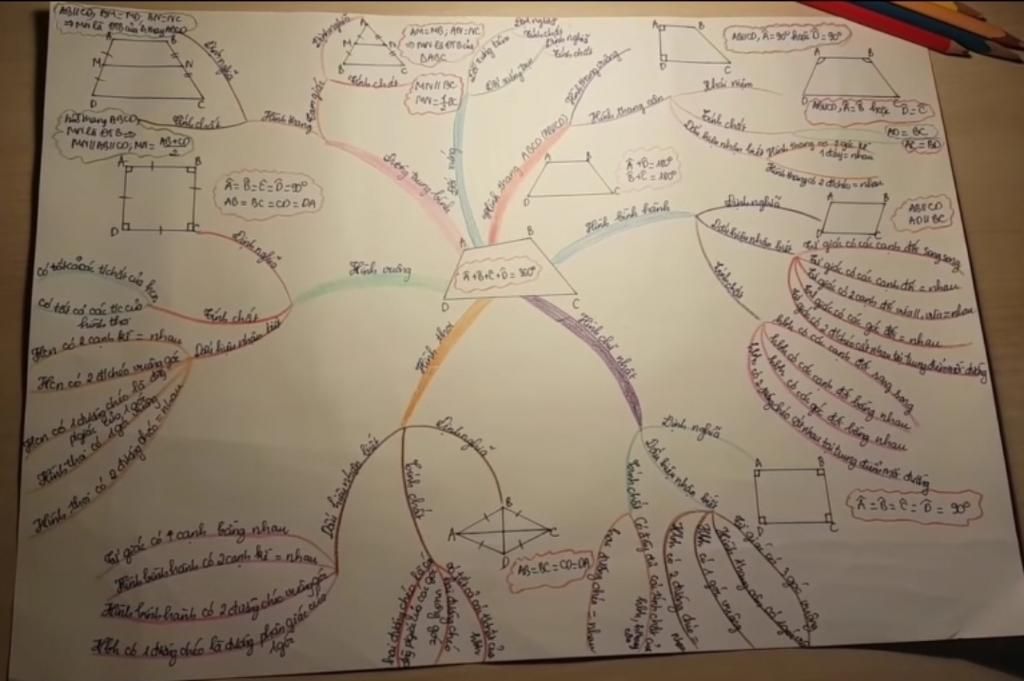 AB//CD, AM = MD, BN = NC
⇒ MN là ĐTB của h.thang ABCD
A
B
M
N
D
C
Định nghĩa
hình thang ABCD,
MN là ĐTB ⇒
MN//AB//CD, MN = AB+CD/2
Tính chất
Hình thang
Tam giác
Định nghĩa
A
M
N
B
C
AM = MB; AN = NC
⇒ MN là ĐTB của
ΔABC
Tính chất
MN//BC
MN = 1/2 BC
Đường trung bình
Đối xứng
Đối xứng trục
Đối xứng tâm
Định nghĩa
Tính chất
Định nghĩa
Tính chất
Hình thang ABCD (AB//CD)
Hình thang vuông
A
D
C
AB//CD, Â = 90° hoặc D̂ = 90°
Hình thang cân
Khái niệm
A
B
D
C
AB//CD, Â = B̂ hoặc D̂ = Ĉ
Tính chất
AD = BC
AC = BD
Dấu hiệu nhận biết
Hình thang có 2 góc kề
1 đáy = nhau
Hình thang có 2 đ/chéo = nhau
A
B
D
C
Â + D̂ = 180°
B̂ + Ĉ = 180°
A
B
D
C
Â + B̂ + Ĉ + D̂ = 360°
Hình bình hành
Định nghĩa
A
B
D
C
AB//CD
AD//BC
Dấu hiệu nhận biết
Tứ giác có các cạnh đối song song
Tứ giác có các cạnh đối = nhau
Tứ giác có 2 cạnh đối vừa //, vừa = nhau
Tứ giác có các góc đối = nhau
Tứ giác có 2 đ/chéo cắt nhau tại trung điểm mỗi đường
Tính chất
hbh có các cạnh đối song song
hbh có các cạnh đối bằng nhau
hbh có các góc đối bằng nhau
hbh có 2 đường chéo cắt nhau tại trung điểm mỗi đường
Hình vuông
Định nghĩa
A
B
D
C
Â = B̂ = Ĉ = D̂ = 90°
AB = BC = CD = DA
Tính chất
có tất cả các t/chất của hcn
có tất cả các t/c của
hình thoi
Dấu hiệu nhận biết
Hcn có 2 cạnh kề = nhau
Hcn có 2 đ/chéo vuông góc
Hcn có 1 đường chéo là đg
p/giác của 1 góc
Hình thoi có 1 góc vuông
Hình thoi có 2 đường chéo = nhau
Hình thoi
Định nghĩa
A
B
C
D
AB = BC = CD = DA
Tính chất
có tất cả các t/chất của
hbh
hai đường chéo
vuông góc
hai đường chéo là các
đg p/giác của các góc
Dấu hiệu nhận biết
Tứ giác có 4 cạnh bằng nhau
Hình bình hành có 2 cạnh kề = nhau
Hình bình hành có 2 đường chéo vuông góc
Hbh có 1 đường chéo là đường phân giác của
1 góc
Hình chữ nhật
Định nghĩa
A
B
C
Â = B̂ = Ĉ = D̂ = 90°
Dấu hiệu nhận biết
Tứ giác có 3 góc vuông
Hình thang cân có 1 góc vuông
Hbh có 1 góc vuông
Hbh có 2 đường chéo = nhau
Tính chất
Có đầy đủ các tính chất của
hbh, h.thang
cân
hai đường chéo = nhau